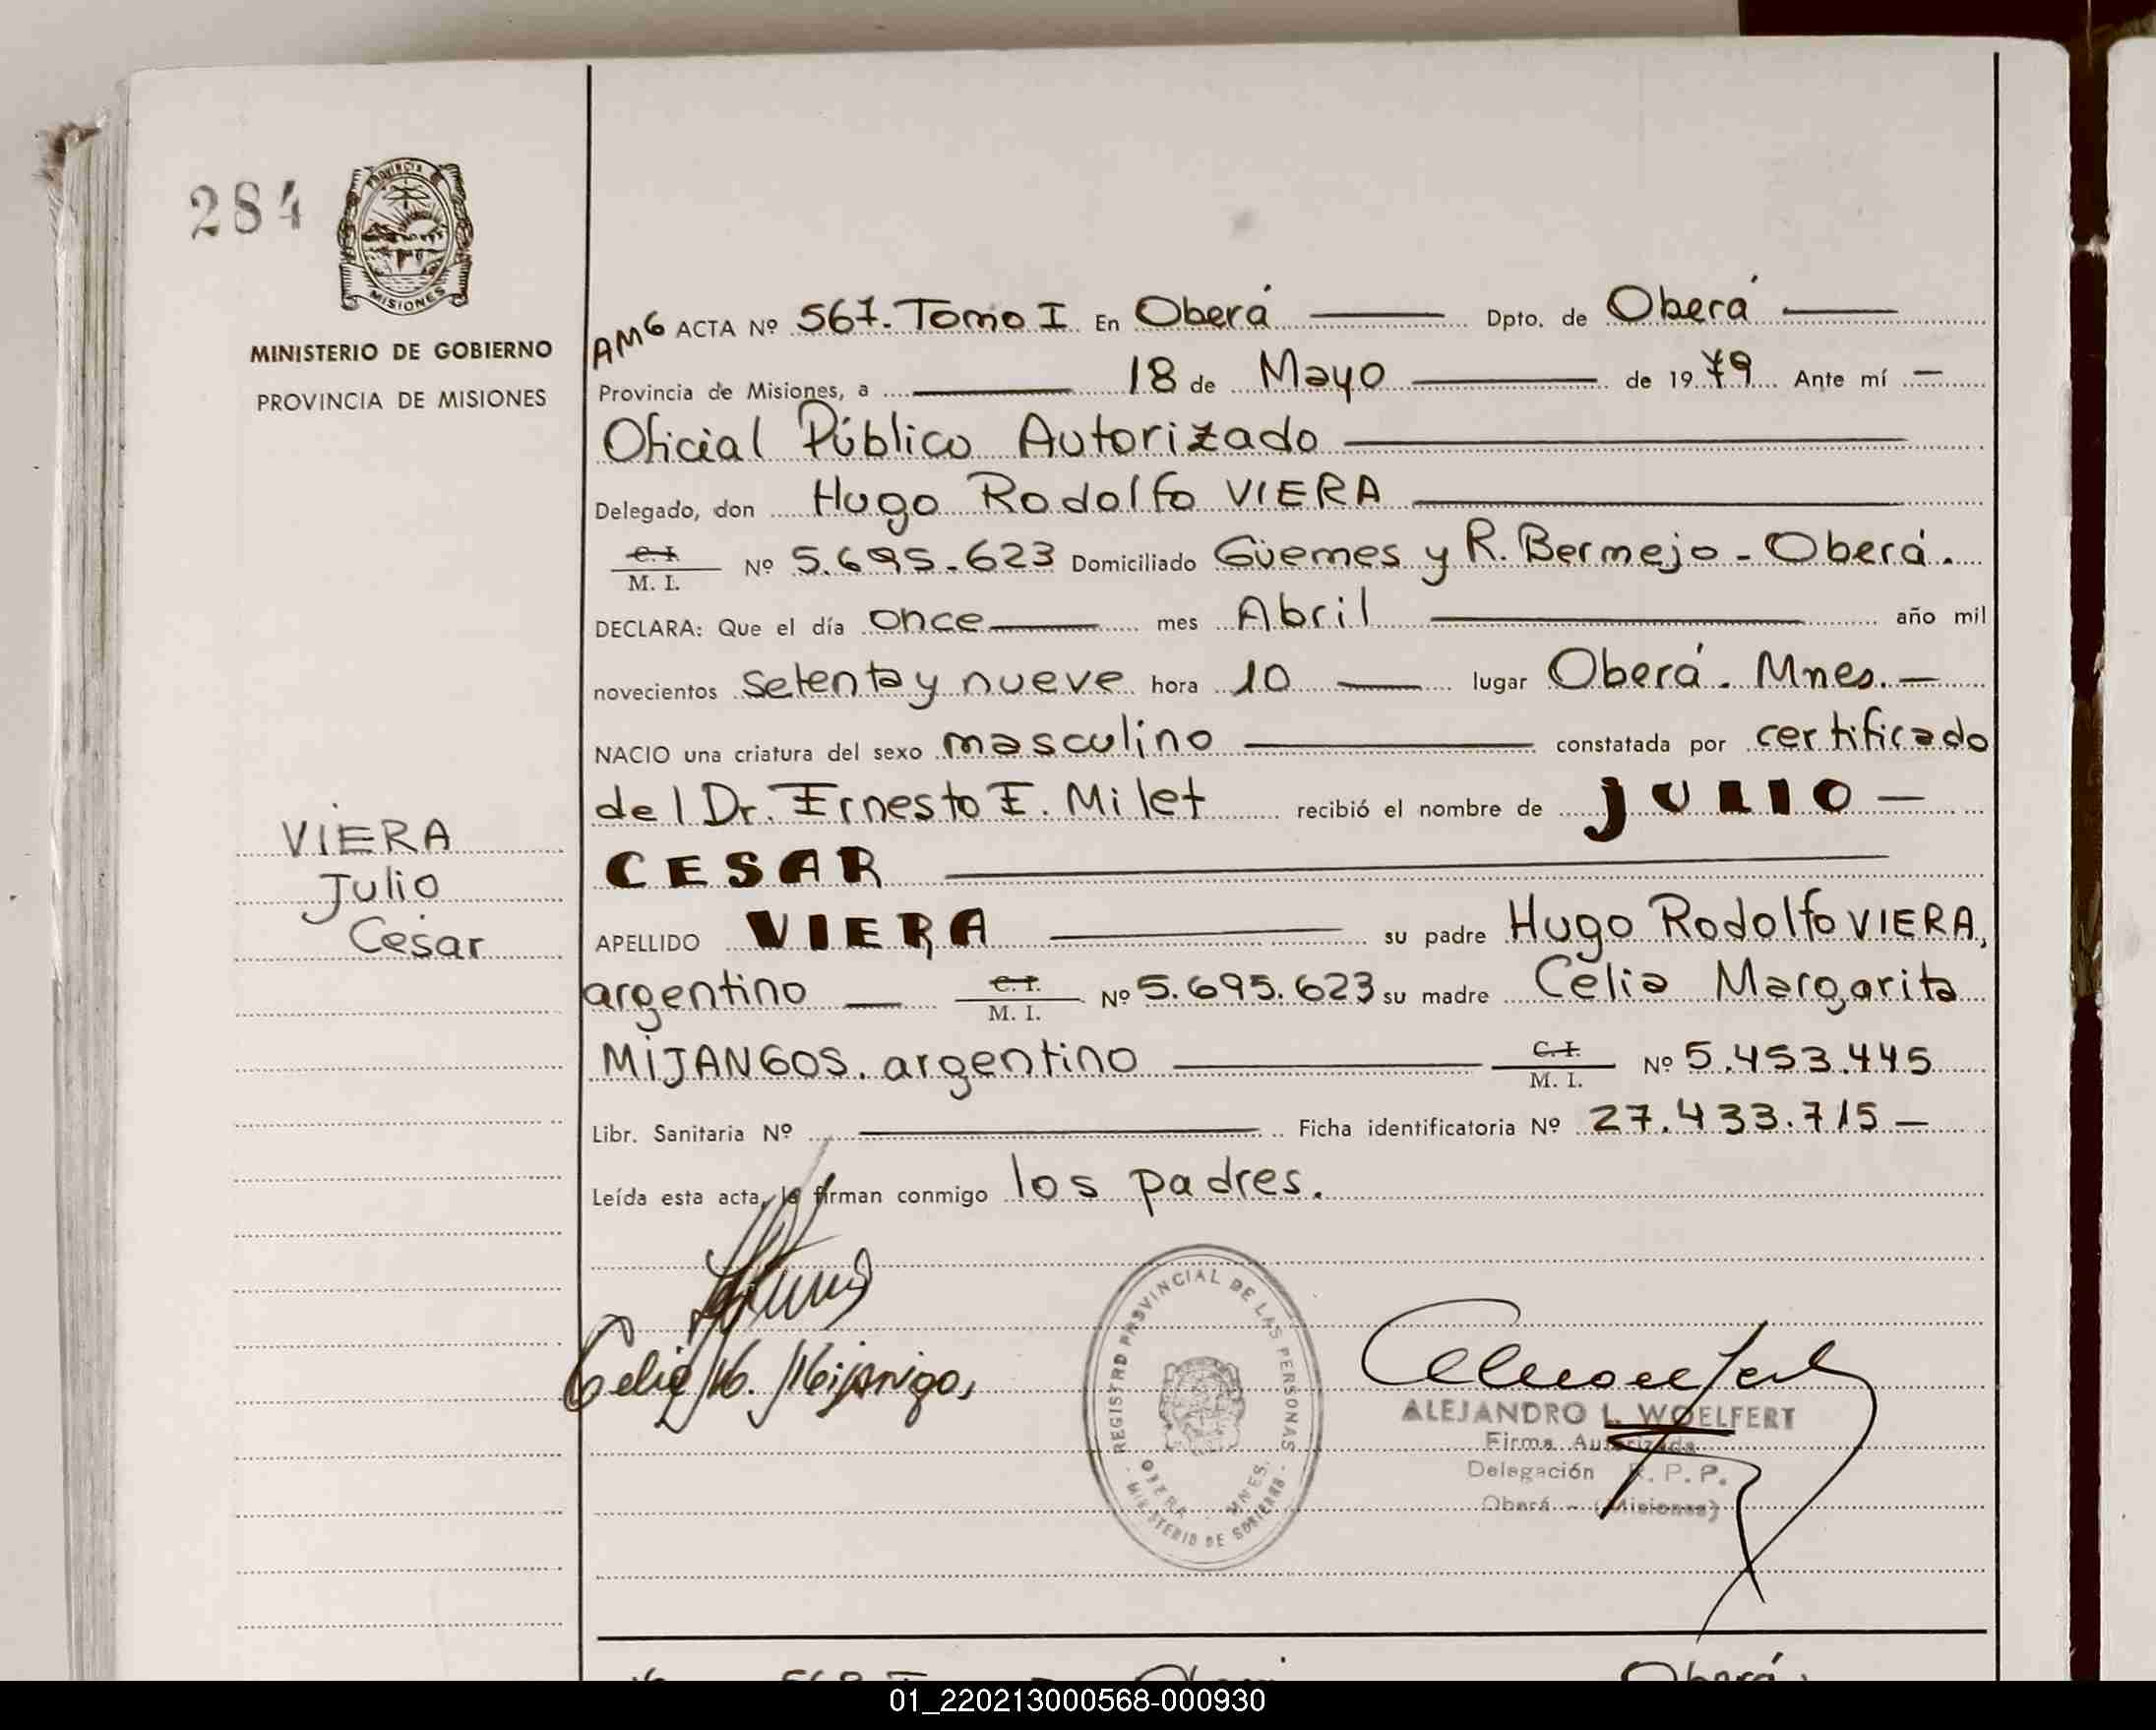 284
PROVINCIA DE
MISIONES
MINISTERIO DE GOBIERNO
PROVINCIA DE MISIONES
VIERA
Julio
Cesar
AMG ACTA Nº 567. Tomo I En Oberá Dpto. de Oberá
Provincia de Misiones, a 18 de Mayo de 1979 Ante mí
Oficial Público Autorizado
Delegado, don Hugo Rodolfo VIERA
C. I.
M. I. Nº 5.695.623 Domiciliado Güemes y R. Bermejo - Oberá.
DECLARA: Que el día once mes Abril año mil
novecientos setenta y nueve hora 10 lugar Oberá. Mnes.
NACIO una criatura del sexo masculino constatada por certificado
del Dr. Ernesto E. Milet recibió el nombre de JULIO
CESAR
APELLIDO VIERA su padre Hugo Rodolfo VIERA,
argentino C. I. M. I. Nº 5.695.623 su madre Celia Margarita
MIJANGOS. argentino C. I. M. I. Nº 5.453.445
Libr. Sanitaria Nº Ficha identificatoria Nº 27.433.715
Leída esta acta, la firman conmigo los padres.
Celia M. Mijangos
REGISTRO PROVINCIAL DE LAS PERSONAS
OBERA MNES.
MINISTERIO DE GOBIERNO
ALEJANDRO L. WOELFERT
Firma Autorizada
Delegación R. P. P.
Oberá - (Misiones)
01_220213000568-000930